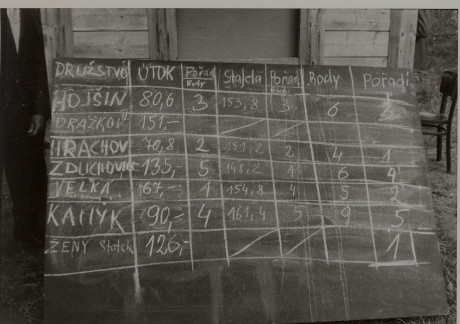 DRUŽSTVO ÚTOK Pořad Body Štafeta Pořad Body Pořadí
HOJŠÍN 80,6 3 153,8 3 6
DRAŽKOV 151,-
HRACHOV 70,8 2 151,2 2 4 1
ZDUCHOVICE 135,- 5 1 6 4
VELKÁ 67,- 1 154,8 4 5 2
KAMÝK 90,- 4 161,4 5 9 5
ŽENY 126,- 1